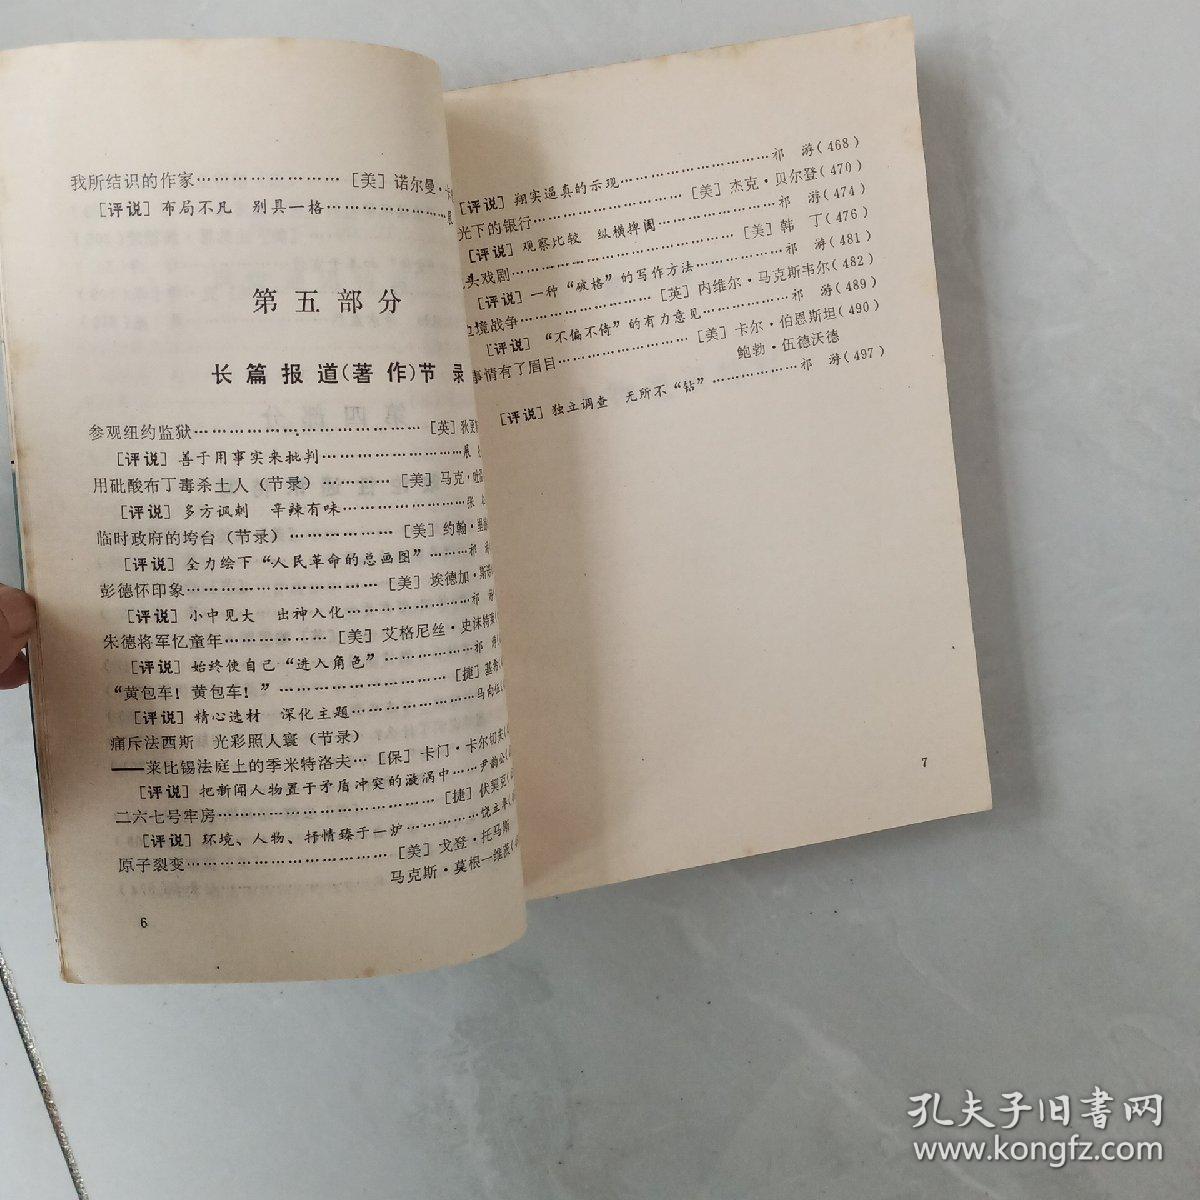 我所结识的作家……………………[美] 诺尔曼·卡
[评说] 布局不凡 别具一格…………………展
第五部分
长篇报道(著作)节录
参观纽约监狱…………………………………[英]狄更
[评说] 善于用事实来批判…………………展
用砒酸布丁毒杀土人 (节录) …………[美] 马克·吐
[评说] 多方讽刺 辛辣有味…………………张
临时政府的垮台 (节录) …………………[美]约翰·里
[评说] 全力绘下“人民革命的总画图”………祁
彭德怀印象……………………………[美] 埃德加·斯
[评说] 小中见大 出神入化…………………祁
朱德将军忆童年………………[美] 艾格尼丝·史沫特莱
[评说] 始终使自己“进入角色”………………祁
“黄包车! 黄包车! ”…………………………[捷] 基希
[评说] 精心选材 深化主题…………………马
痛斥法西斯 光彩照人寰 (节录)
——莱比锡法庭上的季米特洛夫…[保] 卡门·卡尔切夫
[评说] 把新闻人物置于矛盾冲突的漩涡中……尹韵公
二六七号牢房……………………………………[捷] 伏契克
[评说] 环境、人物、抒情臻于一炉……………饶立华
原子裂变……………………………[美] 戈登·托马斯
马克斯·莫根—维
6
[评说] 翔实逼真的示现……………………祁 游(468)
光下的银行……………………[美] 杰克·贝尔登(470)
[评说] 观察比较 纵横捭阖…………………祁 游(474)
头戏剧…………………………………[美] 韩 丁(476)
[评说] 一种“破格”的写作方法……………祁 游(481)
边境战争…………………[英] 内维尔·马克斯韦尔(482)
[评说] “不偏不倚”的有力意见……………祁 游(489)
事情有了眉目……………………[美] 卡尔·伯恩斯坦(490)
鲍勃·伍德沃德
[评说] 独立调查 无所不“钻”………………祁 游(497)
7
孔夫子旧书网
www.kongfz.com